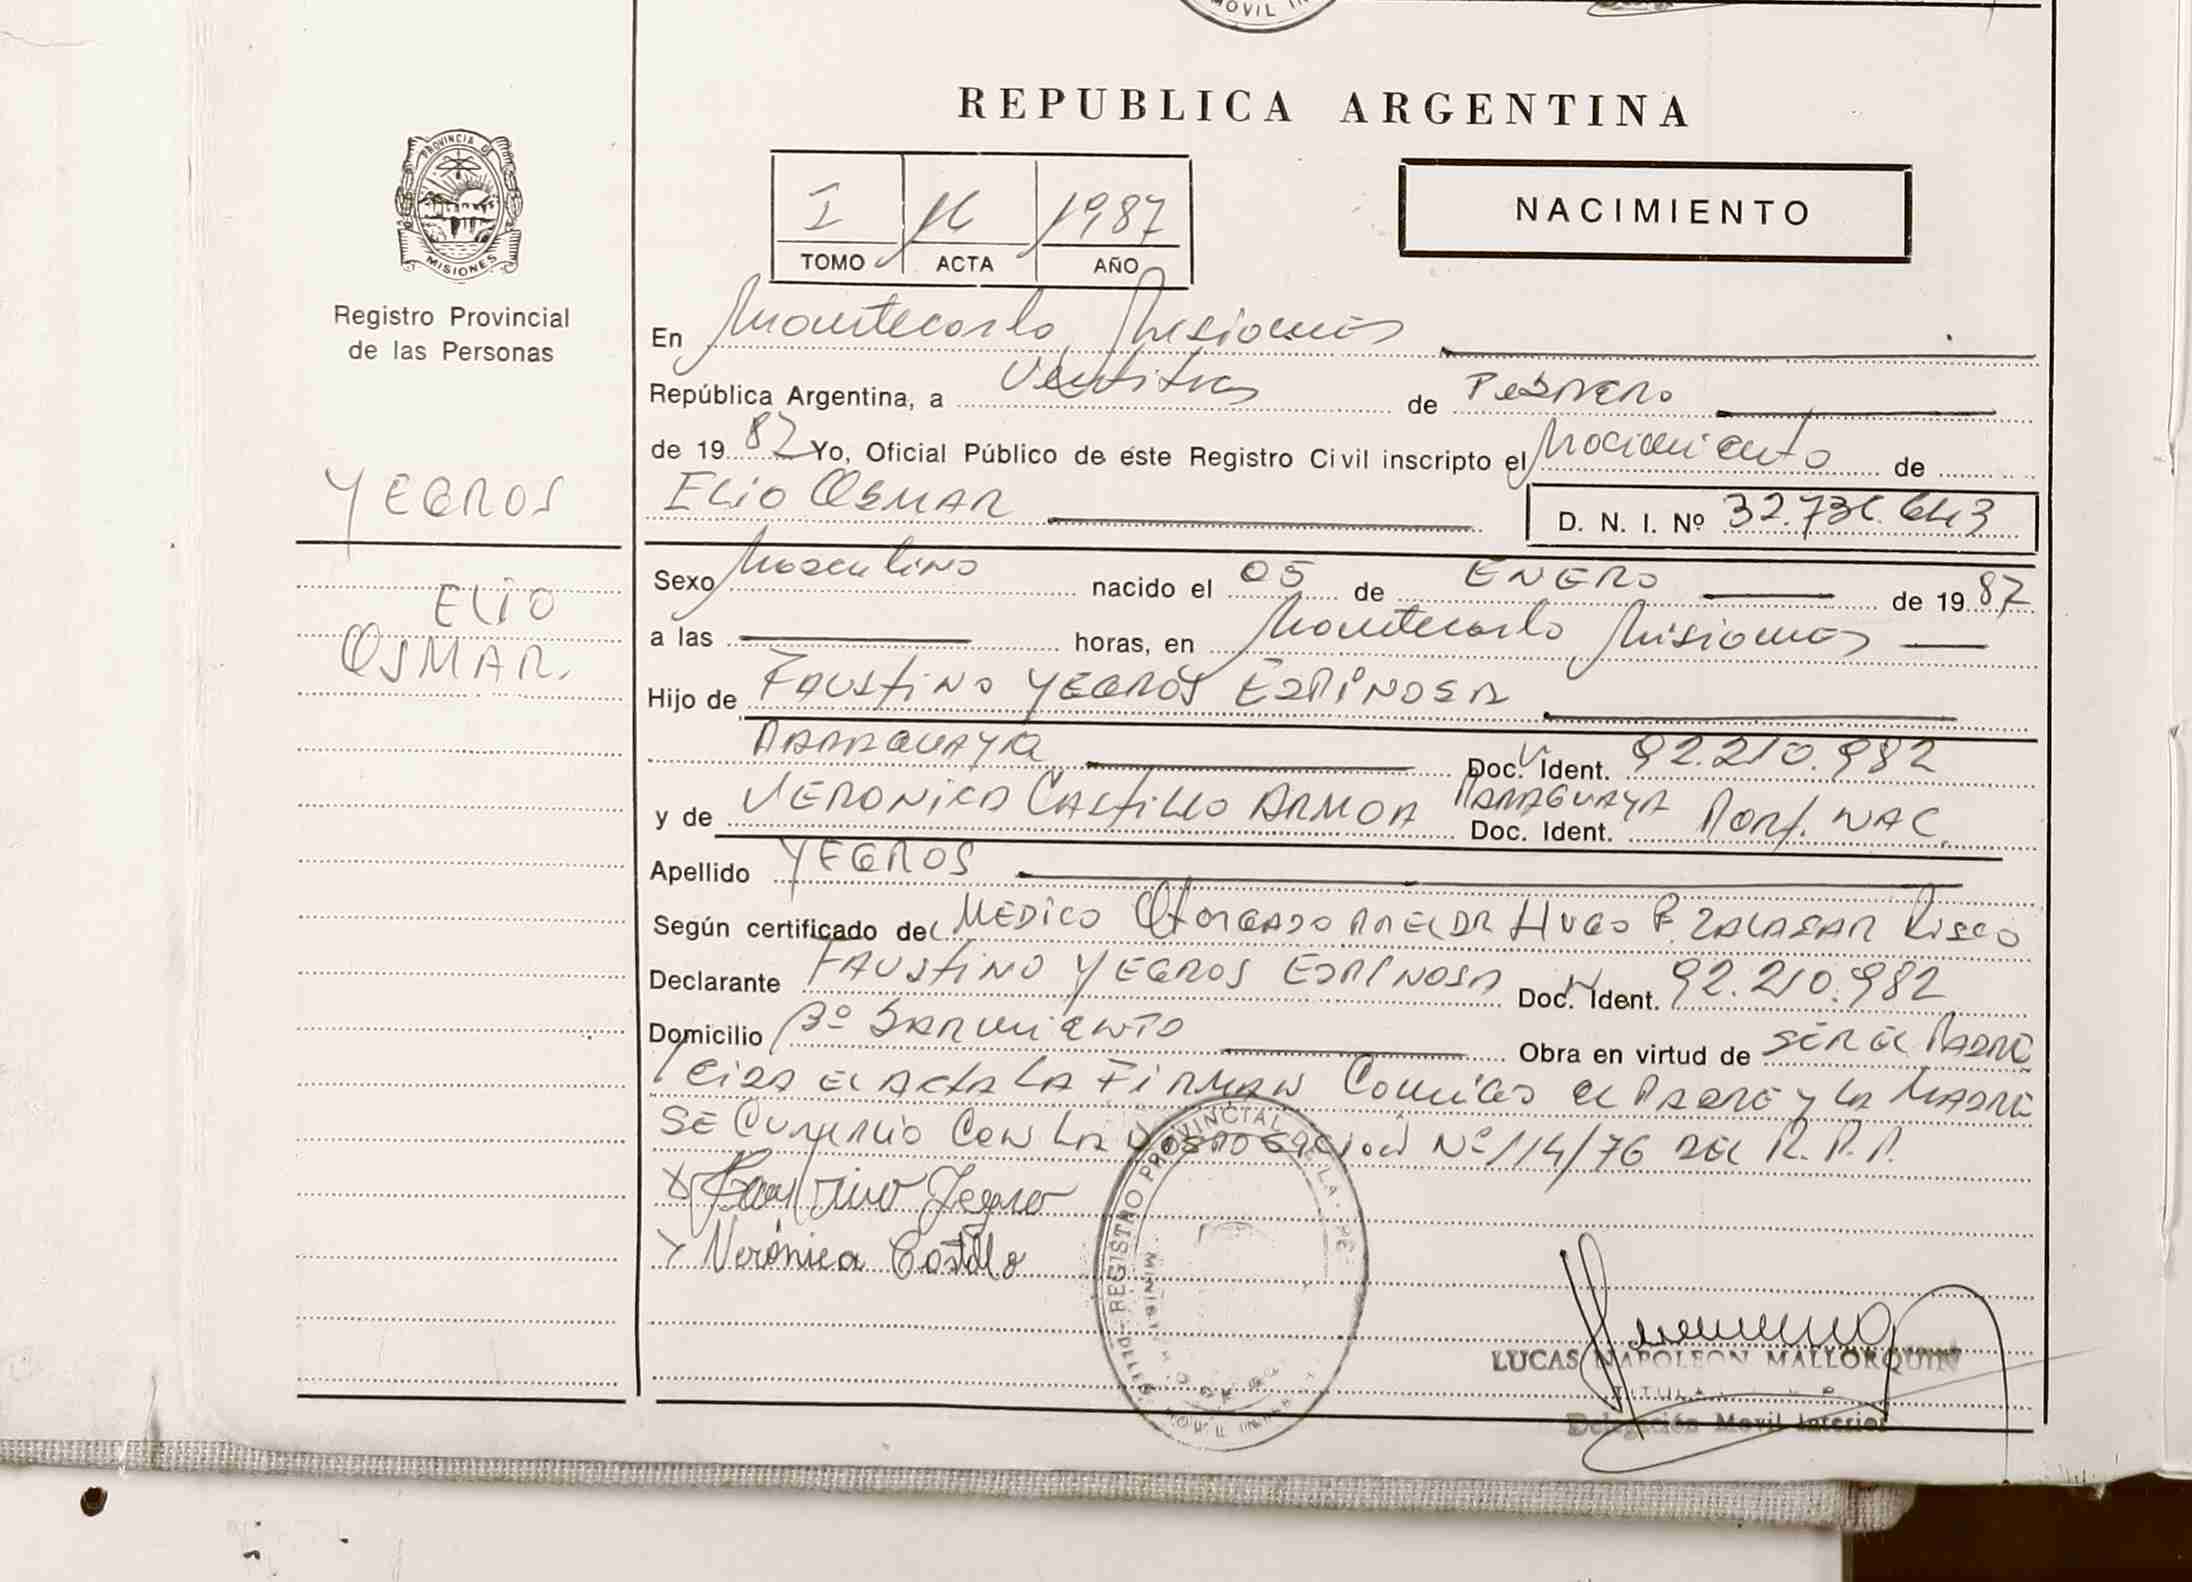 MOVIL IN
REPUBLICA ARGENTINA
PROVINCIA D
MISIONES
Registro Provincial
de las Personas
I 16 1987
TOMO ACTA AÑO
NACIMIENTO
En Montecarlo, Misiones
República Argentina, a Ventitres de Febrero
de 1987 Yo, Oficial Público de este Registro Civil inscripto el Nacimiento de
YEGROS
ELIO OSMAR
D. N. I. Nº 32.736.643
ELIO
OSMAR.
Sexo Masculino nacido el 05 de ENERO de 1987
a las horas, en Montecarlo Misiones
Hijo de FAUSTINO YEGROS ESPINOSA
PARAGUAYA Doc. Ident. 92.210.982
y de VERONICA CASTILLO ARMOA PARAGUAYA Doc. Ident. Part. NAC.
Apellido YEGROS
Según certificado del MEDICO OTORGADO POR EL DR HUGO F. SALASAR Risco
Declarante FAUSTINO YEGROS ESPINOSA Doc. Ident. 92.210.982
Domicilio Bº SARMIENTO Obra en virtud de SER EL PADRE
LEIDA EL ACTA LA FIRMAN Conmigo el PADRE y LA MADRE
SE CUMPLIO CON LA DISPOSICION Nº 114/76 DEL R.P.P.
x Faustino Yegro
x Verónica Castillo
REGISTRO PROVINCIAL DE LA PE
LUCAS NAPOLEON MALLORQUIN
TITULA
Delegación Movil Interior